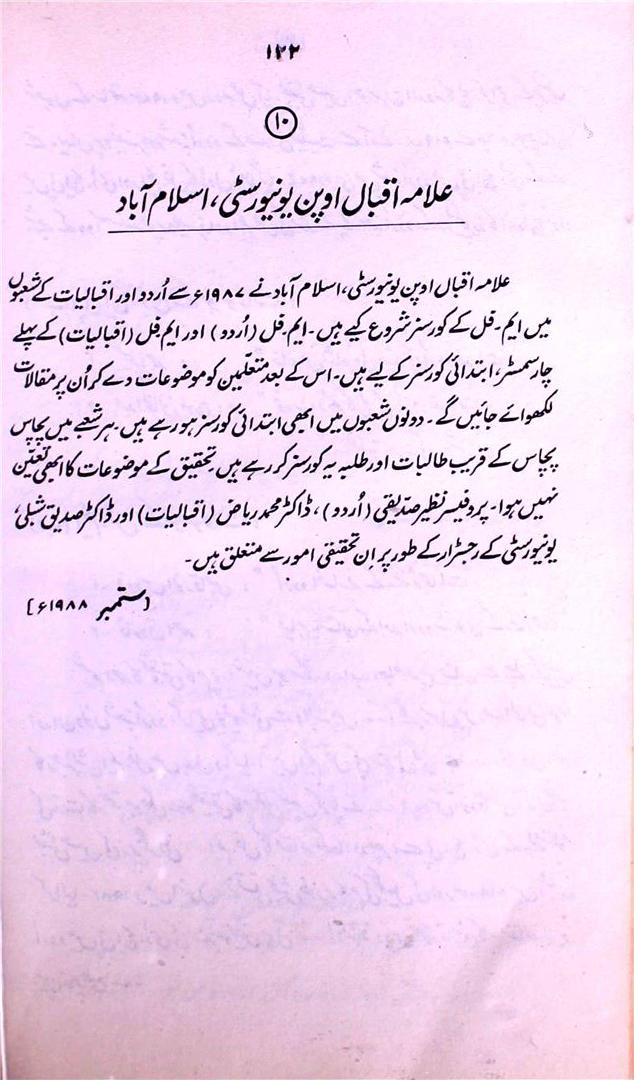 ۱۲۲
۱۰
علامہ اقبال اوپن یونیورسٹی، اسلام آباد
علامہ اقبال اوپن یونیورسٹی، اسلام آباد نے ۱۹۸۷ء سے اُردو اور اقبالیات کے شعبوں
میں ایم۔فل کے کورسز شروع کیے ہیں۔ ایم۔فل (اُردو) اور ایم فِل (اقبالیات) کے پہلے
چار سمسٹر، ابتدائی کورسز کے لیے ہیں۔ اس کے بعد متعلّمین کو موضوعات دے کر اُن پر مقالات
لکھوائے جائیں گے۔ دونوں شعبوں میں ابھی ابتدائی کورسز ہو رہے ہیں۔ ہر شعبے میں پچاس
پچاس کے قریب طالبات اور طلبہ یہ کورسز کر رہے ہیں۔ تحقیق کے موضوعات کا ابھی تعیّن
نہیں ہوا۔ پروفیسر نظیر صدیقی (اُردو)، ڈاکٹر محمد ریاض (اقبالیات) اور ڈاکٹر صدیق شبلی،
یونیورسٹی کے رجسٹرار کے طور پر اِن تحقیقی امور سے متعلق ہیں۔
(ستمبر ۱۹۸۸ء)